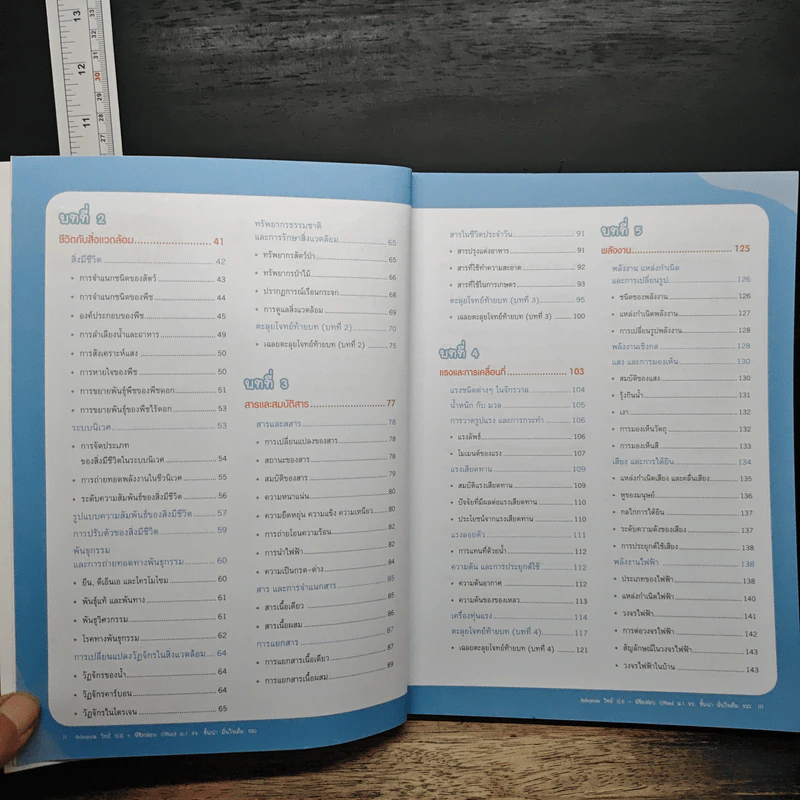 13
12
30
29
28
11
27
บทที่ 2
ชีวิตกับสิ่งแวดล้อม 41
สิ่งมีชีวิต 42
• การจำแนกชนิดของสัตว์ 43
• การจำแนกชนิดของพืช 44
• องค์ประกอบของพืช 45
• การลำเลียงน้ำและอาหาร 49
• การสังเคราะห์แสง 50
• การหายใจของพืช 50
• การขยายพันธุ์พืชของพืชดอก 51
• การขยายพันธุ์ของพืชไร้ดอก 53
ระบบนิเวศ 53
• การจัดประเภท
ของสิ่งมีชีวิตในระบบนิเวศ 54
• การถ่ายทอดพลังงานในชีวนิเวศ 55
• ระดับความสัมพันธ์ของสิ่งมีชีวิต 56
รูปแบบความสัมพันธ์ของสิ่งมีชีวิต 57
การปรับตัวของสิ่งมีชีวิต 59
พันธุกรรม
และการถ่ายทอดทางพันธุกรรม 60
• ยีน, ดีเอ็นเอ และโครโมโซม 60
• พันธุ์แท้ และพันทาง 61
• พันธุวิศวกรรม 61
• โรคทางพันธุกรรม 62
การเปลี่ยนแปลงวัฏจักรในสิ่งแวดล้อม 64
• วัฏจักรของน้ำ 64
• วัฏจักรคาร์บอน 64
• วัฏจักรไนโตรเจน 65
ทรัพยากรธรรมชาติ
และการรักษาสิ่งแวดล้อม 65
• ทรัพยากรสัตว์ป่า 65
• ทรัพยากรป่าไม้ 66
• ปรากฏการณ์เรือนกระจก 68
• การดูแลสิ่งแวดล้อม 69
ตะลุยโจทย์ท้ายบท (บทที่ 2) 70
• เฉลยตะลุยโจทย์ท้ายบท (บทที่ 2) 75
บทที่ 3
สารและสมบัติสาร 77
สารและสสาร 78
• การเปลี่ยนแปลงของสาร 78
• สถานะของสาร 78
• สมบัติของสาร 79
• ความหนาแน่น 80
• ความยืดหยุ่น ความแข็ง ความเหนียว 80
• การถ่ายโอนความร้อน 82
• การนำไฟฟ้า 82
• ความเป็นกรด-ด่าง 84
สาร และการจำแนกสาร 85
• สารเนื้อเดียว 85
• สารเนื้อผสม 86
การแยกสาร 87
• การแยกสารเนื้อเดียว 87
• การแยกสารเนื้อผสม 89
สารในชีวิตประจำวัน 91
• สารปรุงแต่งอาหาร 91
• สารที่ใช้ทำความสะอาด 92
• สารที่ใช้ในการเกษตร 93
ตะลุยโจทย์ท้ายบท (บทที่ 3) 95
• เฉลยตะลุยโจทย์ท้ายบท (บทที่ 3) 100
บทที่ 4
แรงและการเคลื่อนที่ 103
แรงชนิดต่างๆ ในจักรวาล 104
น้ำหนัก กับ มวล 105
การวาดรูปแรง และการกระทำ 106
• แรงลัพธ์ 106
• โมเมนต์ของแรง 107
แรงเสียดทาน 109
• สมบัติแรงเสียดทาน 109
• ปัจจัยที่มีผลต่อแรงเสียดทาน 110
• ประโยชน์จากแรงเสียดทาน 110
แรงลอยตัว 111
• การแทนที่ด้วยน้ำ 112
ความดัน และการประยุกต์ใช้ 112
• ความดันอากาศ 112
• ความดันของของเหลว 113
เครื่องทุ่นแรง 114
ตะลุยโจทย์ท้ายบท (บทที่ 4) 117
• เฉลยตะลุยโจทย์ท้ายบท (บทที่ 4) 121
บทที่ 5
พลังงาน 125
พลังงาน แหล่งกำเนิด
และการเปลี่ยนรูป 126
• ชนิดของพลังงาน 126
• แหล่งกำเนิดพลังงาน 127
• การเปลี่ยนรูปพลังงาน 128
พลังงานเชิงกล 128
แสง และการมองเห็น 130
• สมบัติของแสง 130
• รุ้งกินน้ำ 131
• เงา 132
• การมองเห็นวัตถุ 132
• การมองเห็นสี 133
เสียง และการได้ยิน 134
• แหล่งกำเนิดเสียง และคลื่นเสียง 135
• หูของมนุษย์ 136
• กลไกการได้ยิน 137
• ระดับความดังของเสียง 137
• การประยุกต์ใช้เสียง 138
พลังงานไฟฟ้า 138
• ประเภทของไฟฟ้า 138
• แหล่งกำเนิดไฟฟ้า 140
• วงจรไฟฟ้า 141
• การต่อวงจรไฟฟ้า 142
• สัญลักษณ์ในวงจรไฟฟ้า 143
• วงจรไฟฟ้าในบ้าน 143